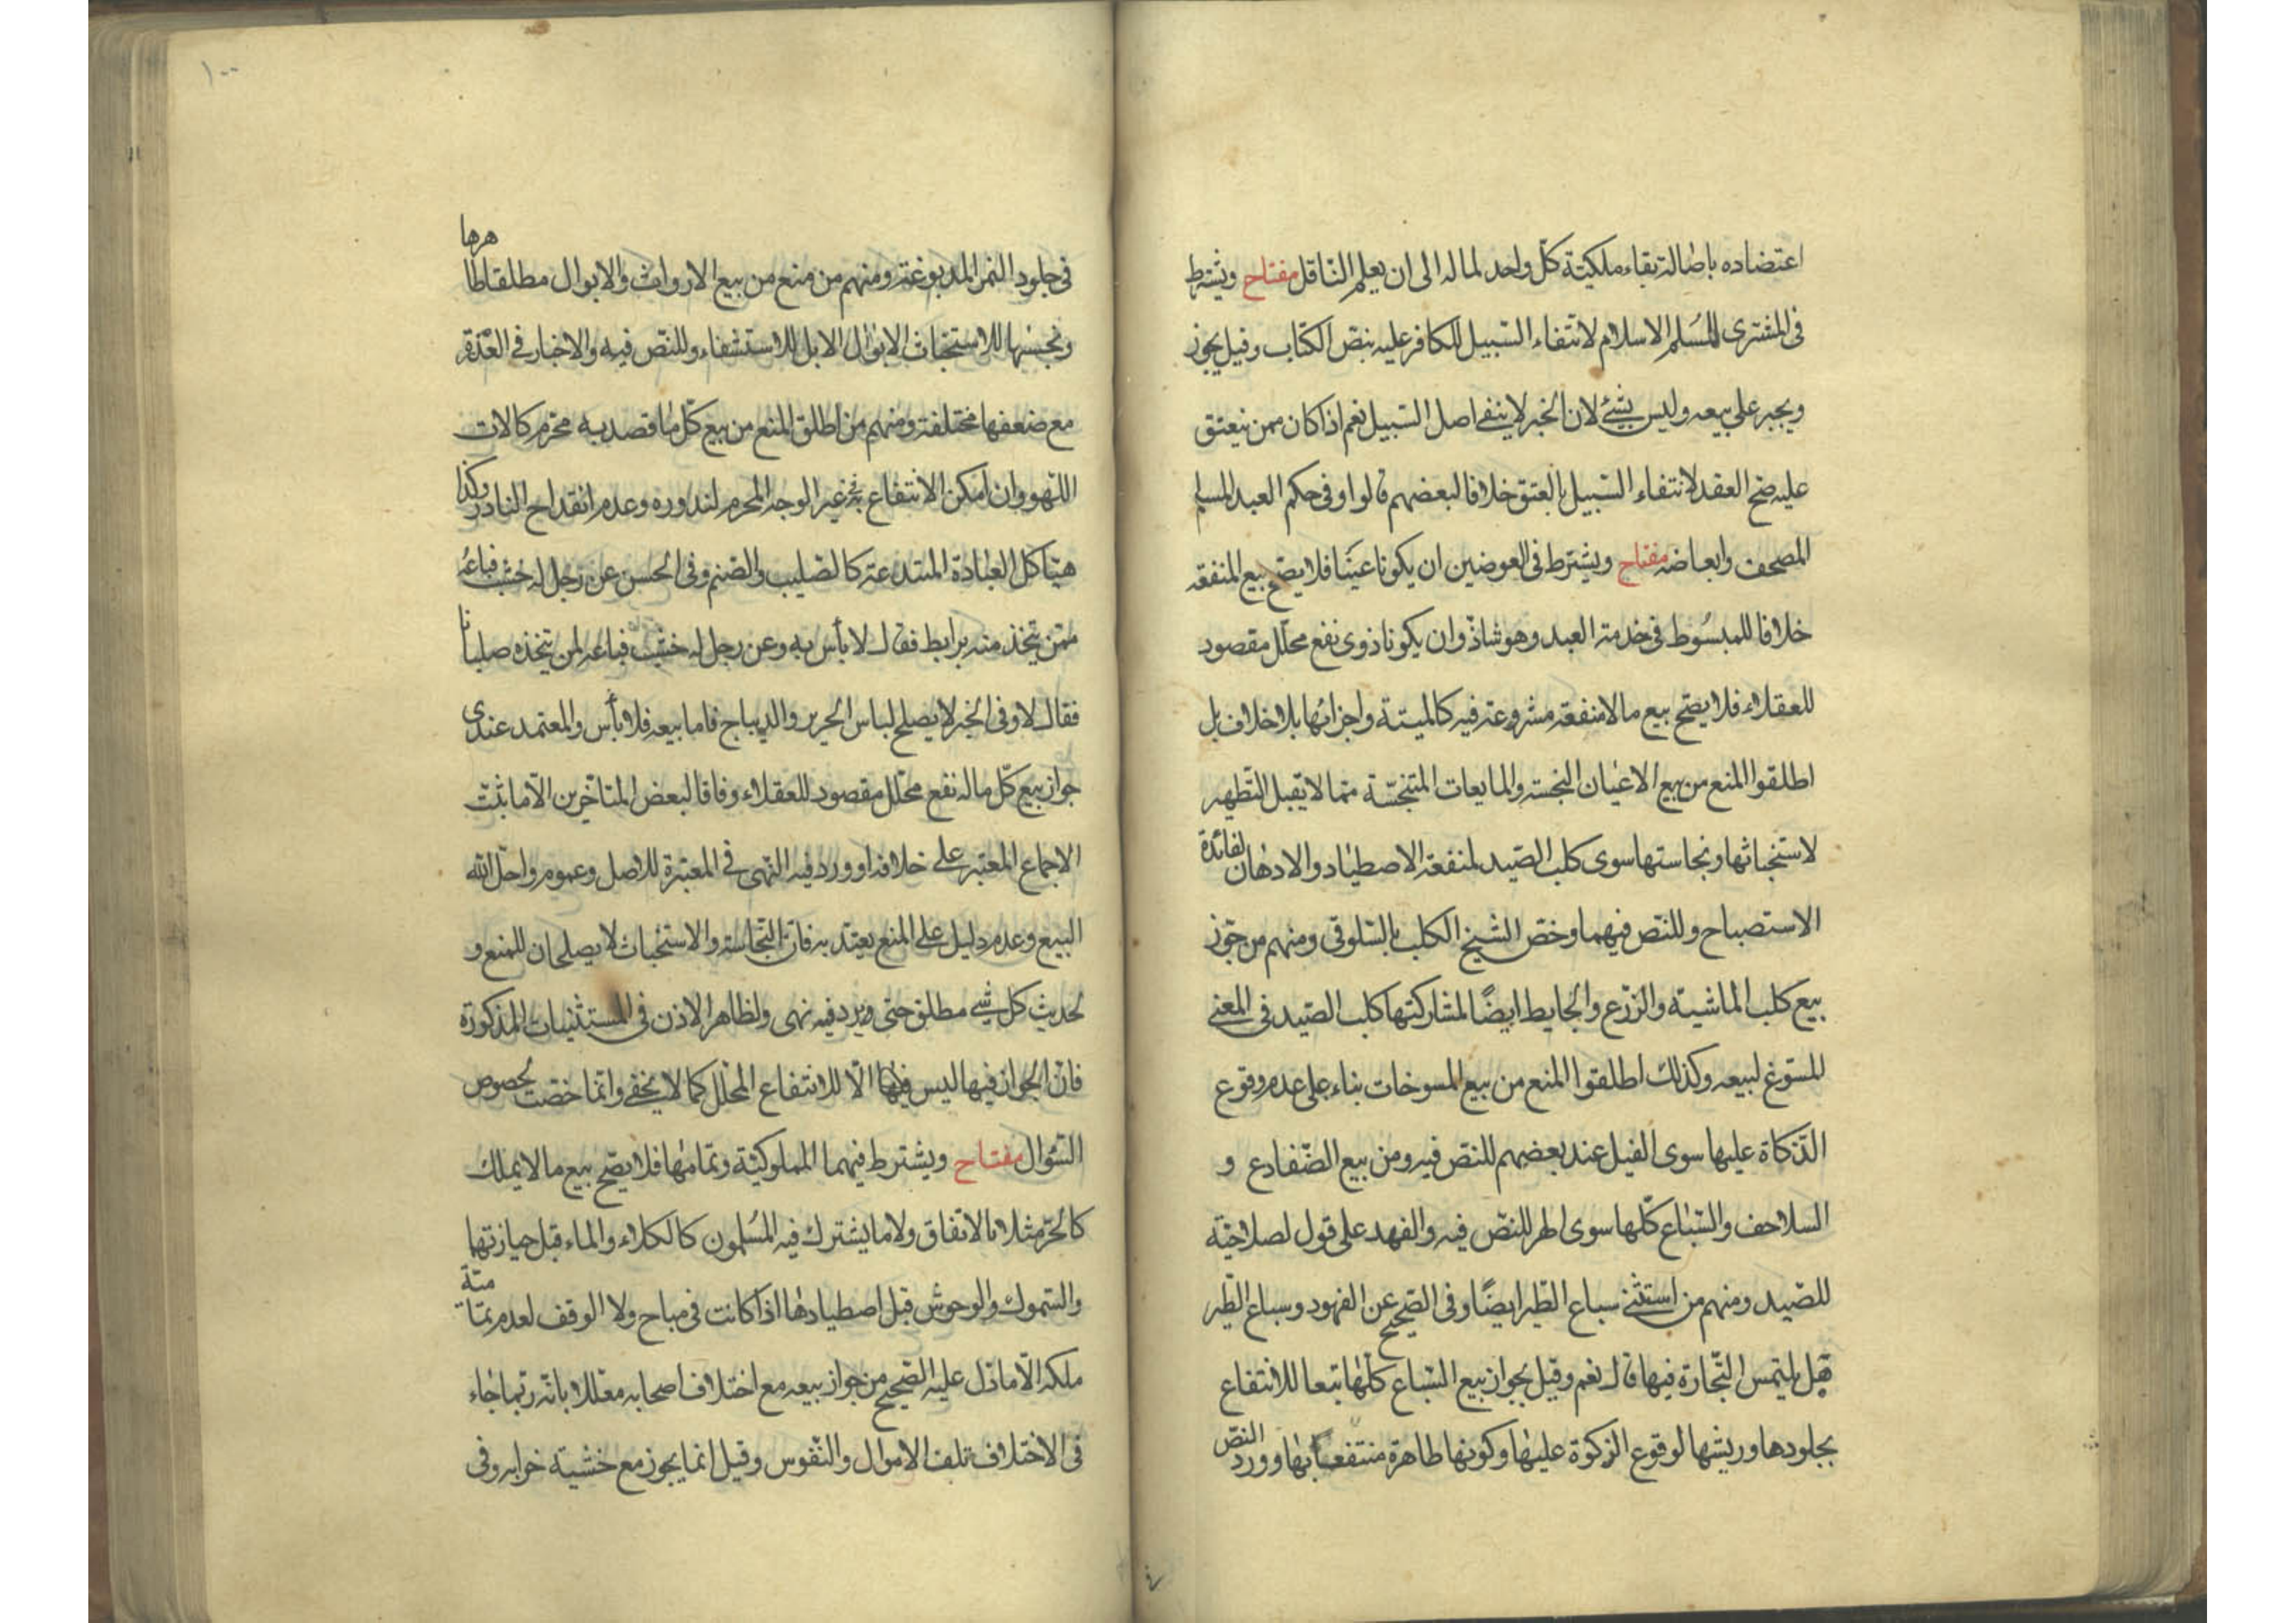 اعتضاده باصالة بقاء ملكيّة كلّ واحد لماله الى ان يعلم النّاقل مفتاح ويشترط
فى المشترى للمُسلم الاسلام لانتفاء السّبيل للكافر عليه بنصّ الكتاب وقيل يجوز
ويجبر على بيعه وليس بشئ لان الخبر لا ينفى اصل السّبيل نعم اذا كان ممن ينعتق
عليه صحّ العقد لانتفاء السّبيل بالعتق خلافا لبعضهم قالوا وفى حكم العبد المسلم
المصحف وابعاضه مفتاح ويشترط فى العوضين ان يكونا عينًا فلا يصّح بيع المنفعه
خلافا للمبسُوط فى خدمة العبد وهو شاذّ وان يكونا ذوى نفع محلّل مقصود
للعقلاء فلا يصّح بيع مالا منفعة مشروعة فيه كالميتة واجزائها بلا خلاف بل
اطلقوا المنع من بيع الاعيان النجسة والمايعات المتنجّسة ممّا لا يقبل التّطهير
لاستخباثها ونجاستها سوى كلب الصّيد لمنفعة الاصطياد والادهان لفائدة
الاستصباح وللنّص فيهما وخصّ الشيخ الكلب بالسّلوقى ومنهم من جوّز
بيع كلب الماشية والزّرع والحايط ايضًا لمشاركتها كلب الصّيد فى المعنى
المسوّغ لبيعه وكذلك اطلقوا المنع من بيع المسوخات بناء على عدم وقوع
الذّكاة عليها سوى الفيل عند بعضهم للنصّ فيه ومن بيع الضّفادع و
السلاحف والسّباع كلّها سوى الهر للنصّ فيه والفهد على قول لصلاحيّة
للصّيد ومنهم من استثنى سباع الطّير ايضًا وفى الصّحيح عن الفهود وسباع الطّير
هل يلتمس التّجارة فيها قال نعم وقيل بجواز بيع السّباع كلّها تبعا للانتفاع
بجلودها وريشها لوقوع الزكوة عليها وكونها طاهرة منتفعا بها وورد النصّ
١٠٠
فى جلود النمر المدبوغة ومنهم من منع من بيع الارواث والابوال مطلقا طاهرها
ونجسها للاستخباث الا بوال الابل للاستشفاء وللنّص فيه والاخبار فى العذرة
مع ضعفها مختلفة ومنهم من اطلق المنع من بيع كلّ ما قصد به محرّم كالات
اللّهو وان امكن الانتفاع به غير الوجه المحرم لندوره وعدم انقداح النادر وكذا
هيٰاكل العبادة المبتدعة كالصّليب والصّنم وفى الحسن عن رجل له خشب فباعه
ممّن يتخذ منه برابط فقال لا بأس به وعن رجل له خشب فباعه لمن يتخذه صلبانا
فقال لا وفى الخبر لا يصلح لباس الحرير والديباج فاما بيعه فلا بأس والمعتمد عندى
جواز بيع كلّ ماله نفع محلّل مقصود للعقلاء وفاقا لبعض المتاخّرين الّا ما ثبت
الاجماع المعتبر على خلافه او ورد فيه النّهى فى المعتبرة للاصل وعموم واحلّ الله
البيع وعدم دليل على المنع يعتدّ به فانّ النّجاسة والاستخباث لا يصلحان للمنع و
لحديث كل شئ مطلق حتى يرد فيه نهى ولظاهر الاذن فى المستثنيات المذكورة
فانّ الجواز فيها ليس فيها الّا للانتفاع المحلّل كما لا يخفى وانّما خصّت بخصوص
السّؤال مفتاح ويشترط فيهما المملوكيّة وتمامها فلا يصحّ بيع مالا يملك
كالحرّ مثلا بالاتفاق ولا ما يشترك فيه المُسلمون كالكلاء والماء قبل حيازتهما
والسّموك والوحوش قبل اصطيادها اذا كانت فى مباح ولا الوقف لعدم تماميّة
ملكه الّا ما دلّ عليه الصّحيح من جواز بيعه مع اختلاف اصحابه معلّلا بانّه ربّما جٰاء
فى الاختلاف تلف الاموال والنّفوس وقيل انما يجوز مع خشية خرابه وفى